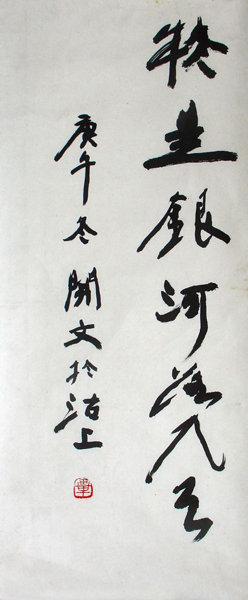 疑是銀河落九天
庚午冬開文於沽上